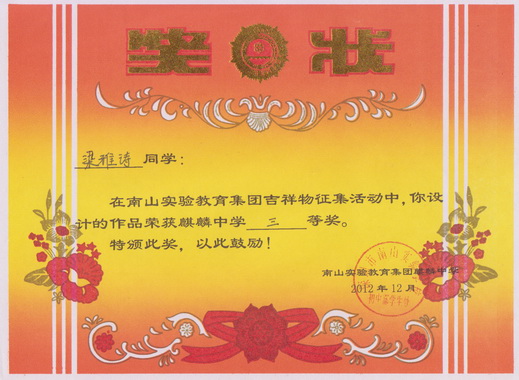 奖状
梁雅诗 同学:
在南山实验教育集团吉祥物征集活动中,你设
计的作品荣获麒麟中学 三 等奖。
特颁此奖,以此鼓励!
南山实验教育集团麒麟中学
2012 年 12 月